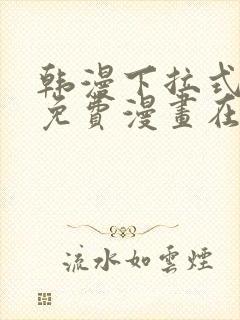 韩漫下拉式
免費漫畫在
流水如雲煙